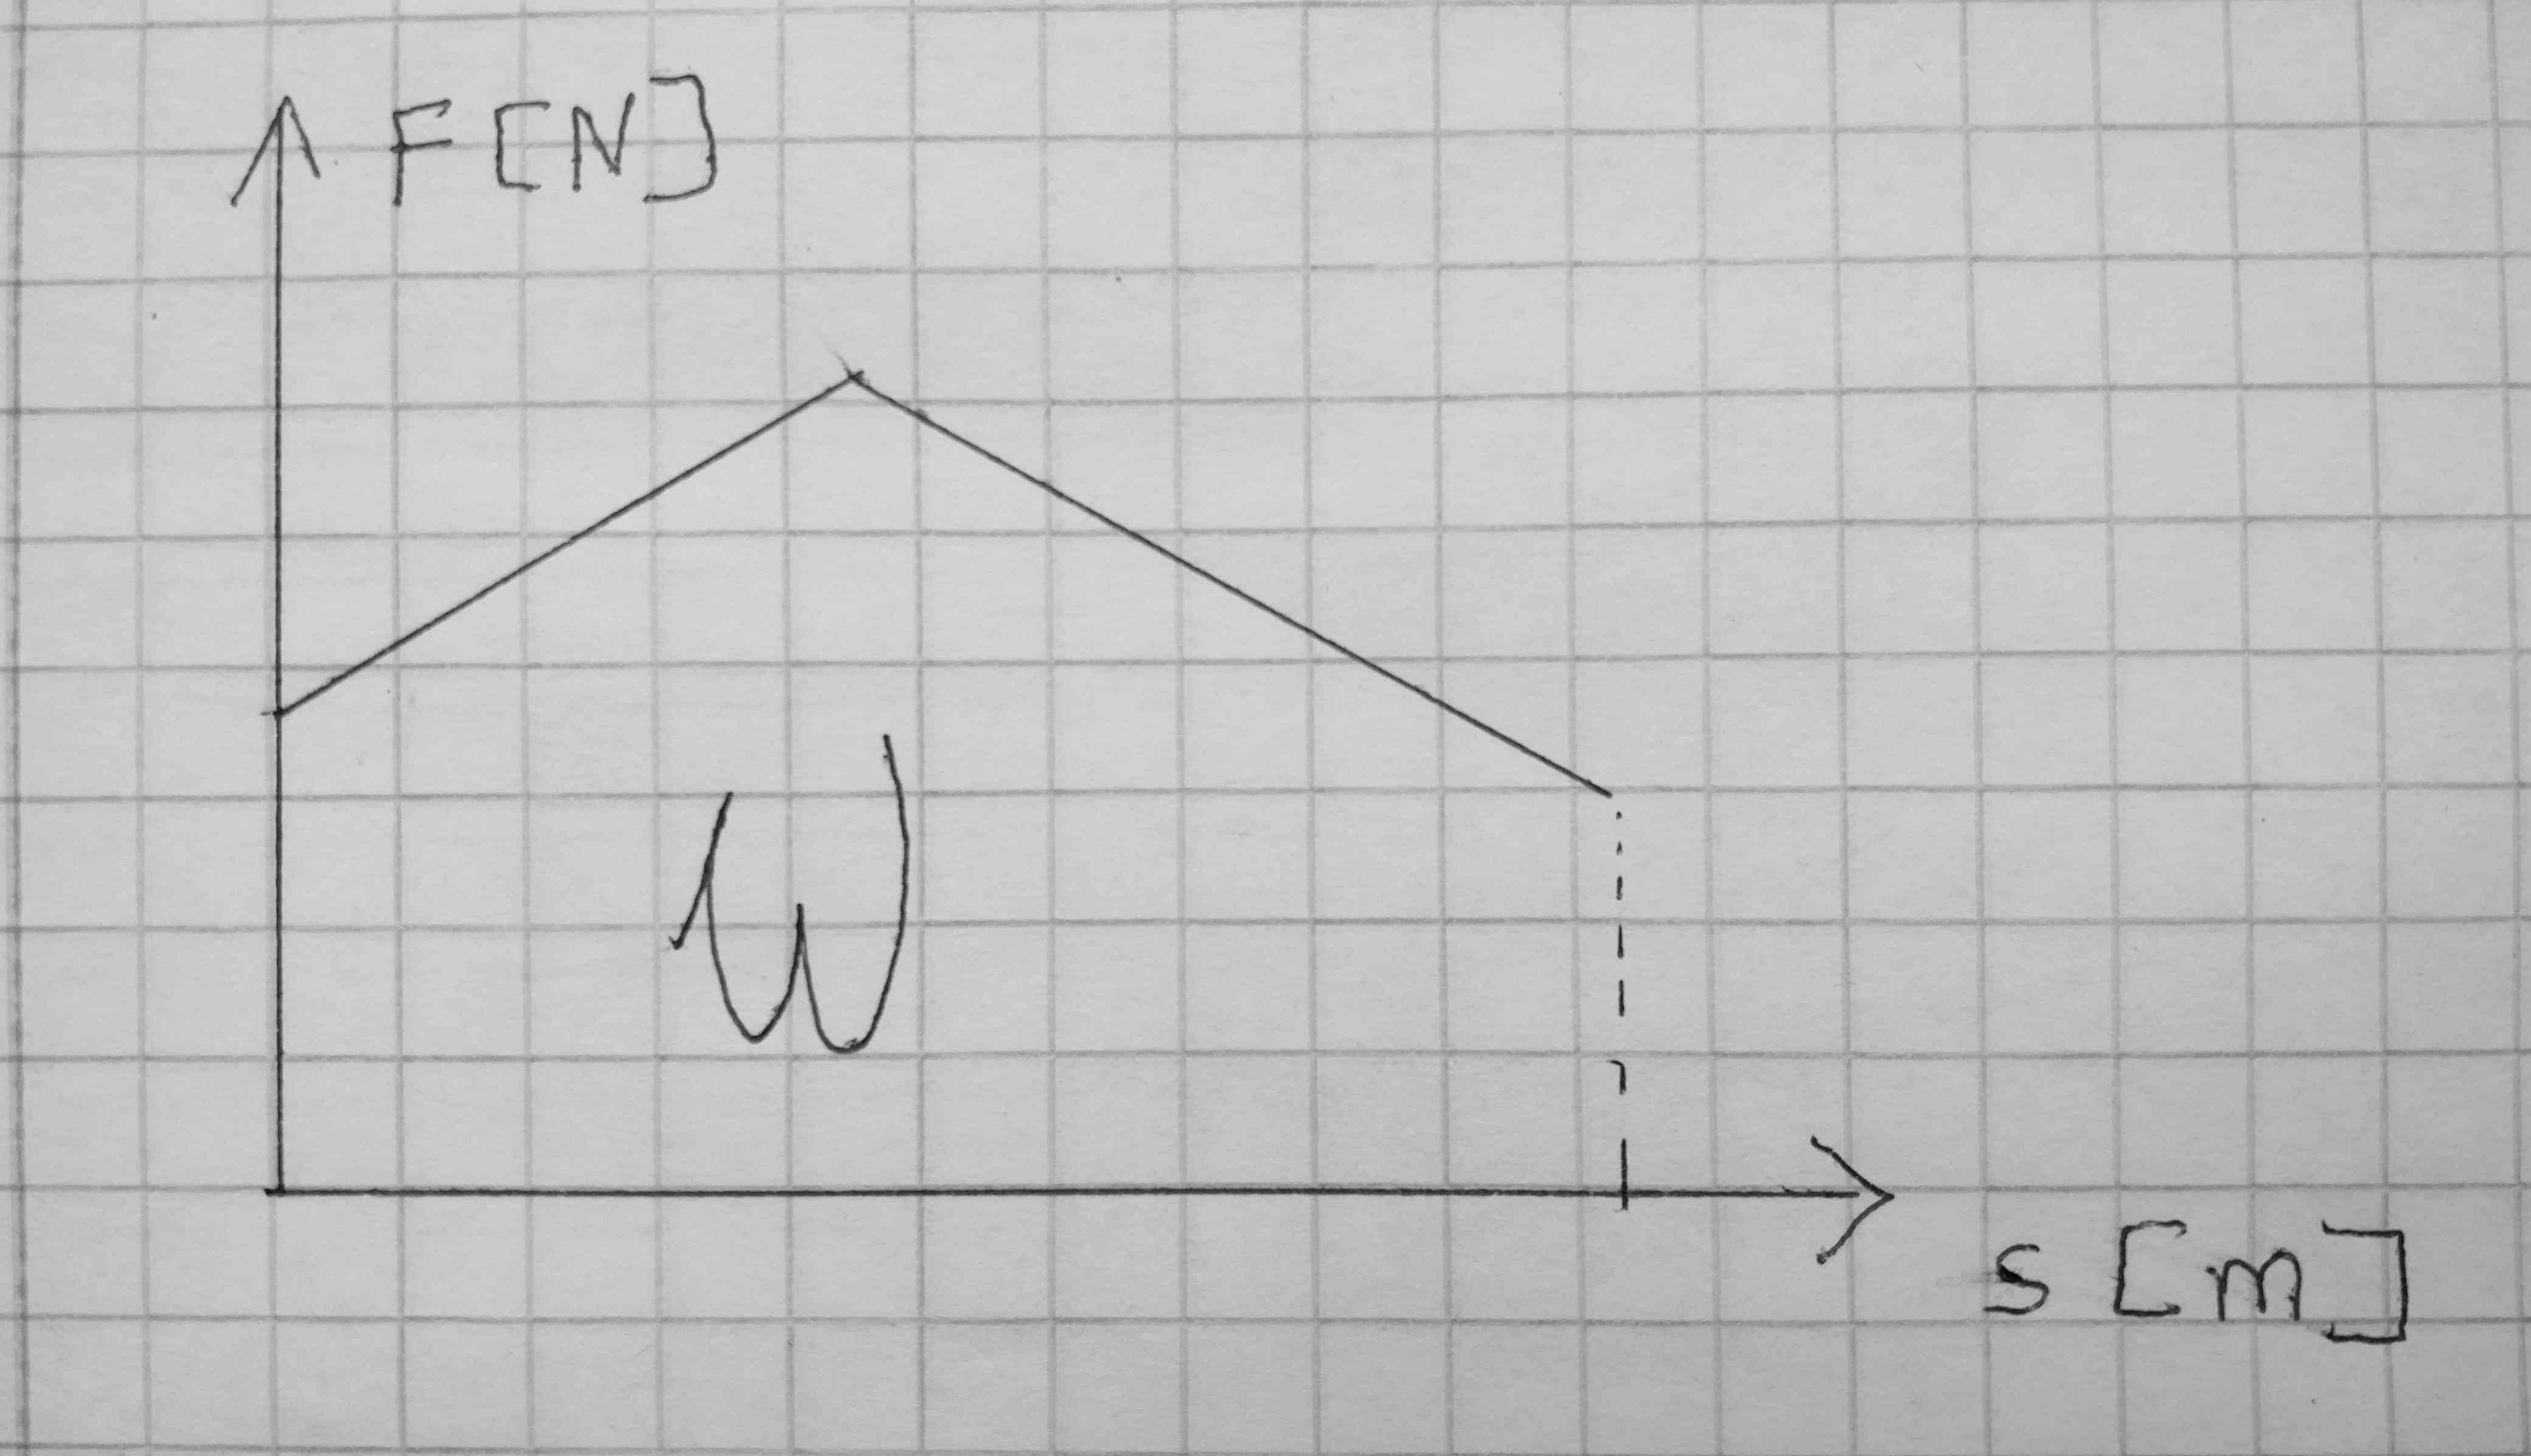 F[N]
W
s[m]